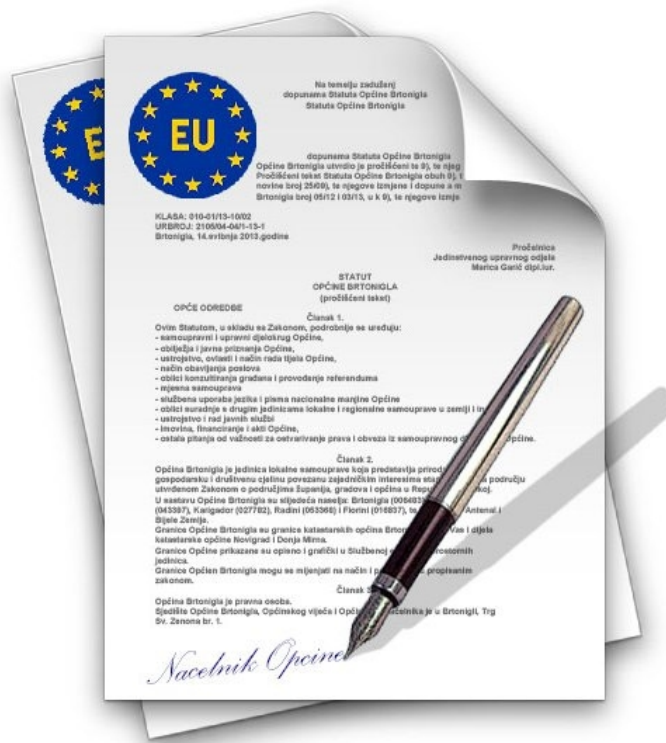 EU
Na temelju zaduženj
dopunama Statuta Općine Brtonigla
Statuta Općine Brtonigla
dopunama Statuta Općine Brtonigla
Općine Brtonigla utvrdio je pročišćeni te 9), te njeg
Pročišćeni tekst Statuta Općine Brtonigla obuh 9), t
novine broj 25/09), te njegove izmjene i dopune a m
Brtonigla broj 05/12 i 03/13, u k 9), te njegove izmje
KLASA: 010-01/13-10/02
URBROJ: 2105/04-04/1-13-1
Brtonigla, 14.svibnja 2013.godine
Pročelnica
Jedinstvenog upravnog odjela
Marica Garić dipl.iur.
STATUT
OPĆINE BRTONIGLA
(pročišćeni tekst)
OPĆE ODREDBE
Članak 1.
Ovim Statutom, u skladu sa Zakonom, podrobnije se uređuju:
- samoupravni i upravni djelokrug Općine,
- obilježja i javna priznanja Općine,
- ustrojstvo, ovlasti i način rada tijela Općine,
- način obavljanja poslova
- oblici konzultiranja građana i provođenje referenduma
- mjesna samouprava
- službena uporaba jezika i pisma nacionalne manjine Općine
- oblici suradnje s drugim jedinicama lokalne i regionalne samouprave u zemiji i in
- ustrojstvo i rad javnih službi
- imovina, financiranje i akti Općine,
- ostala pitanja od važnosti za ostvarivanje prava i obveza iz samoupravnog d Općine.
Članak 2.
Općina Brtonigla je jedinica lokalne samouprave koja predstavlja prirod
gospodarsku i društvenu cjelinu povezanu zajedničkim interesima sta a području
utvrđenom Zakonom o područjima županija, gradova i općina u Repu koj.
U sastavu Općine Brtonigla su slijedeća naselja: Brtonigla
(043387), Karigador (027782), Radini (053366) i Fiorini (016837), te Antenal i
Bijele Zemlje.
Granice Općine Brtonigla su granice katastarskih općina Brto Vas i dijela
katastarske općine Novigrad i Donja Mirna.
Granice Općine prikazane su opisno i grafički u Službenoj rostornih
jedinica.
Granice Općien Brtonigla mogu se mijenjati na način i p propisanim
zakonom.
Članak
Općina Brtonigla je pravna osoba.
Sjedište Općine Brtonigla, Općinskog vijeća i Opći načelnika je u Brtonigli, Trg
Sv. Zenona br. 1.
Nacelnik Opcine